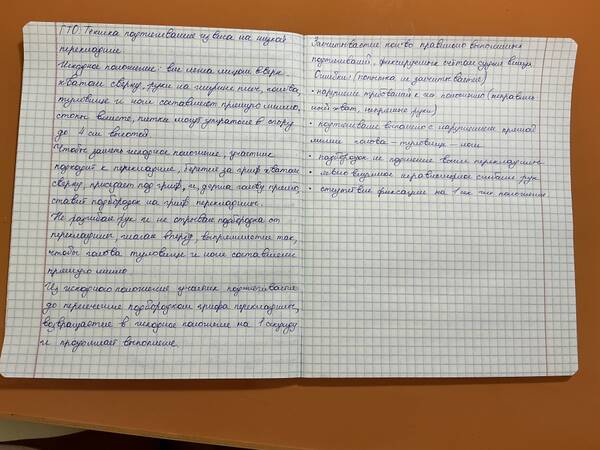 ГТО: Техника подтягивания из виса на низкой
перекладине
Исходное положение: вис лежа лицом вверх
хватом сверху, руки на ширине плеч, голова,
туловище и ноги составляют прямую линию,
стопы вместе, пятки могут упираться в опору
до 4 см высотой.
Чтобы занять исходное положение, участник
подходит к перекладине, берется за гриф хватом
сверху, приседает под гриф, и, держа голову прямо,
ставит подбородок на гриф перекладины.
Не разгибая рук и не отрывая подбородка от
перекладины, шагая вперёд, выпрямляется так,
чтобы голова туловище и ноги составляли
прямую линию.
Из исходного положения участник подтягивается
до пересечения подбородком грифа перекладины,
возвращается в исходное положение на 1 секунду
и продолжает выполнение
Засчитывается кол-во правильно выполненных
подтягиваний, фиксируемых счётом судьи вслух.
Ошибки: (попытка не засчитывается)
• нарушение требований к исх положению (неправиль
ный хват, непрямые руки)
• подтягивание выполнено с нарушением прямой
линии голова - туловище - ноги
• подбородок не поднялся выше перекладины
• явно видимое неравномерное сгибание рук
• отсутствие фиксации на 1 сек исх положения.